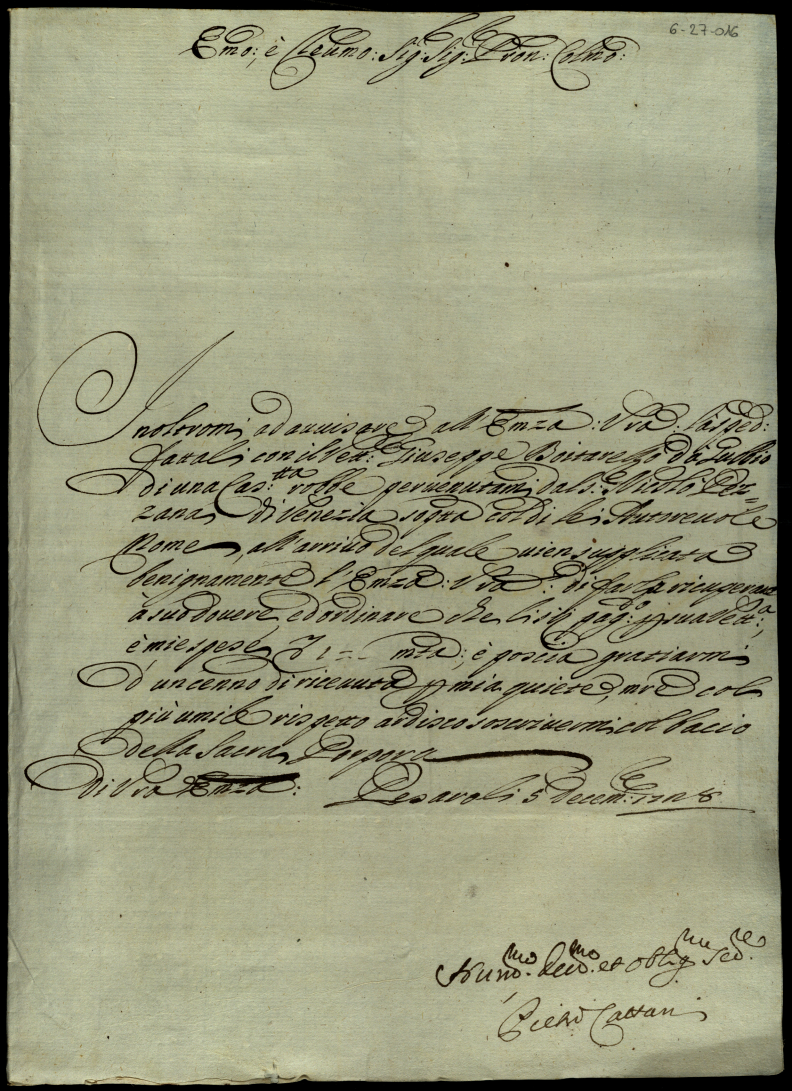 6-27-016
Emo: è Reumo: Sig: Sig: Pron: Colmo:
Inoltromi ad auuisare all'Emza: Vra: la sped:
fattali con il Vett: Giuseppe Bottarelli da Gubbio
di una Cas:tta robbe peruenutami dal S: Nicolò Pez=
zana di Venezia sotto col di lei Autoreuole
Nome, all'arriuo del quale uien supplicata
benignamente l'Emza: Vra: di farla ricuperare
à suo douere, ed ordinare che li sij pag: p sua Vett:a,
è mie spese mta; è poscia gratiarmi
d'un cenno di riceuuta p mia quiete, mre col
più umile rispetto ardisco soscriuermi col bacio
della Sacra Porpora
di Vra Emza: Pesaro li 5 Decem:re 1728
Hum:mo Deu:mo et oblig:mo Ser:re
Pietro Cattani